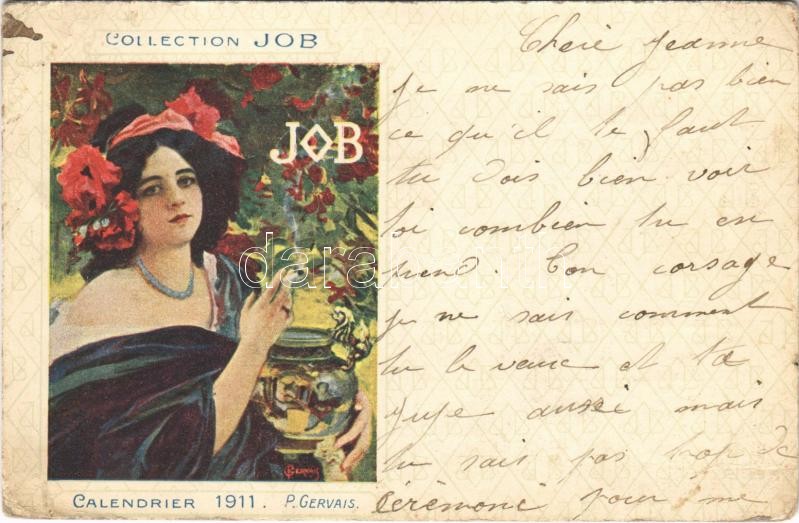 COLLECTION JOB
JOB
GERVAIS
CALENDRIER 1911. P. GERVAIS.
darabanth
Cherie Jeanne
je ne sais pas bien
ce qu'il te faut
tu dois bien voir
toi combien tu en
prend. Ton corsage
je ne sais comment
tu le veux et ta
jupe aussi mais
tu sait pas trop de
cérémoni pour me